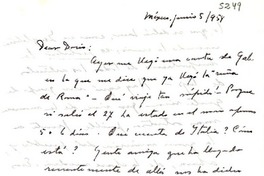 5249
México, junio 5/958
Dear Doris:
Ayer me llegó una carta de Gab
en la que me dice que ya llegó la "niña
de Roma" - Qué viaje tan rápido! Porque
si salió el 27 ha estado en el mar apenas
5 o 6 días! Qué cuenta de Italia? Cómo
está? Gente amiga que ha llegado
recientemente de allá nos ha dicho